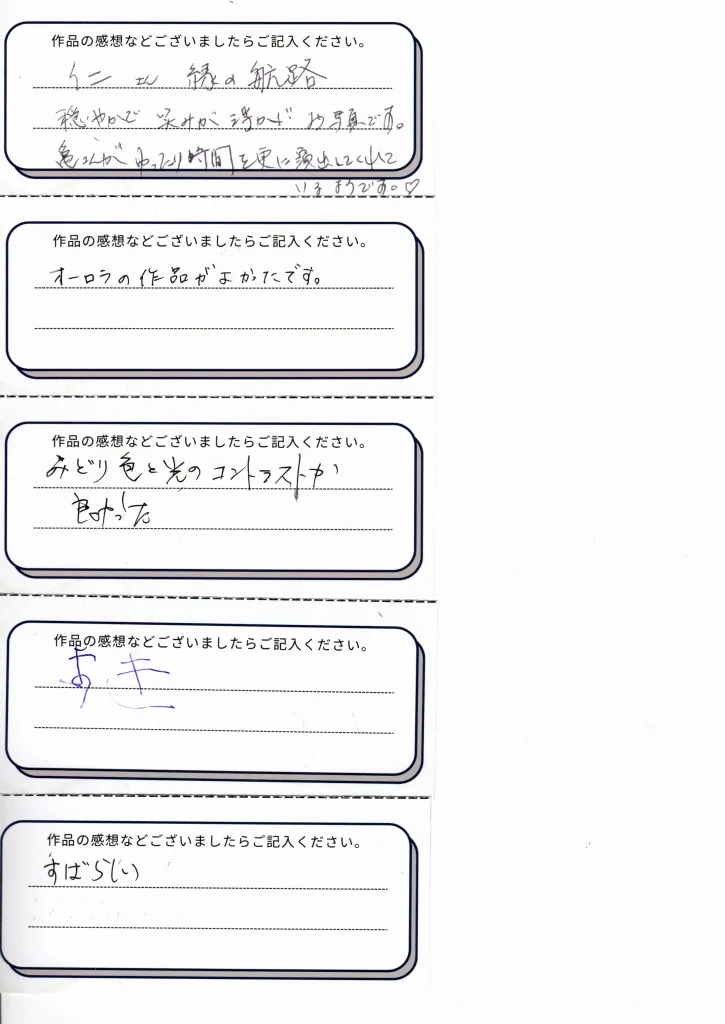 作品の感想などございましたらご記入ください。
仁 さん 縁の航路
穏やかで 笑みが 浮かぶ お写真です。
亀さんが ゆったり時間を更に演出してくれて
いるようです。♡
作品の感想などございましたらご記入ください。
オーロラの作品がよかたです。
作品の感想などございましたらご記入ください。
みどり色と光のコントラストが
良かった
作品の感想などございましたらご記入ください。
作品の感想などございましたらご記入ください。
すばらしい